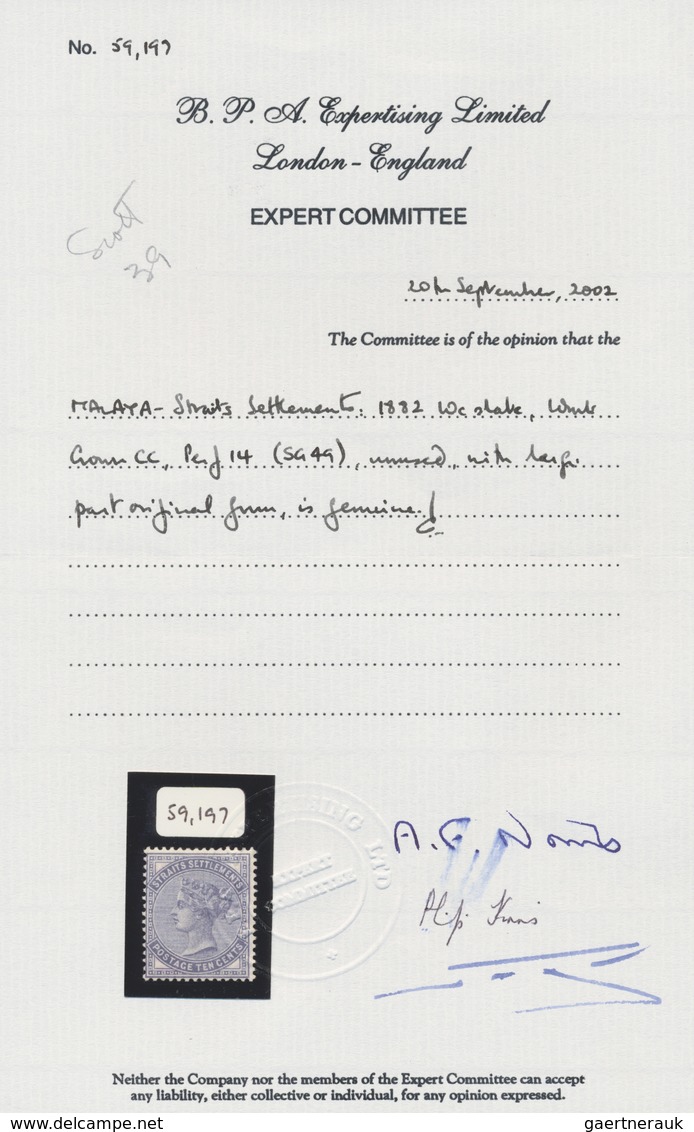 No. 59,197
B. P. A. Expertising Limited
London - England
EXPERT COMMITTEE
Scott
39
20th September, 2002
The Committee is of the opinion that the
MALAYA - Straits Settlements: 1882 10c slate, Wmk
Crown CC, Perf 14 (SG49), unused, with large
part original gum, is genuine.
59,197
STRAITS SETTLEMENTS
POSTAGE TEN CENTS
LTD
EXPERT
COMMITTEE
A. G. Norris
Neither the Company nor the members of the Expert Committee can accept
any liability, either collective or individual, for any opinion expressed.
www.delcampe.net
gaertnerauk